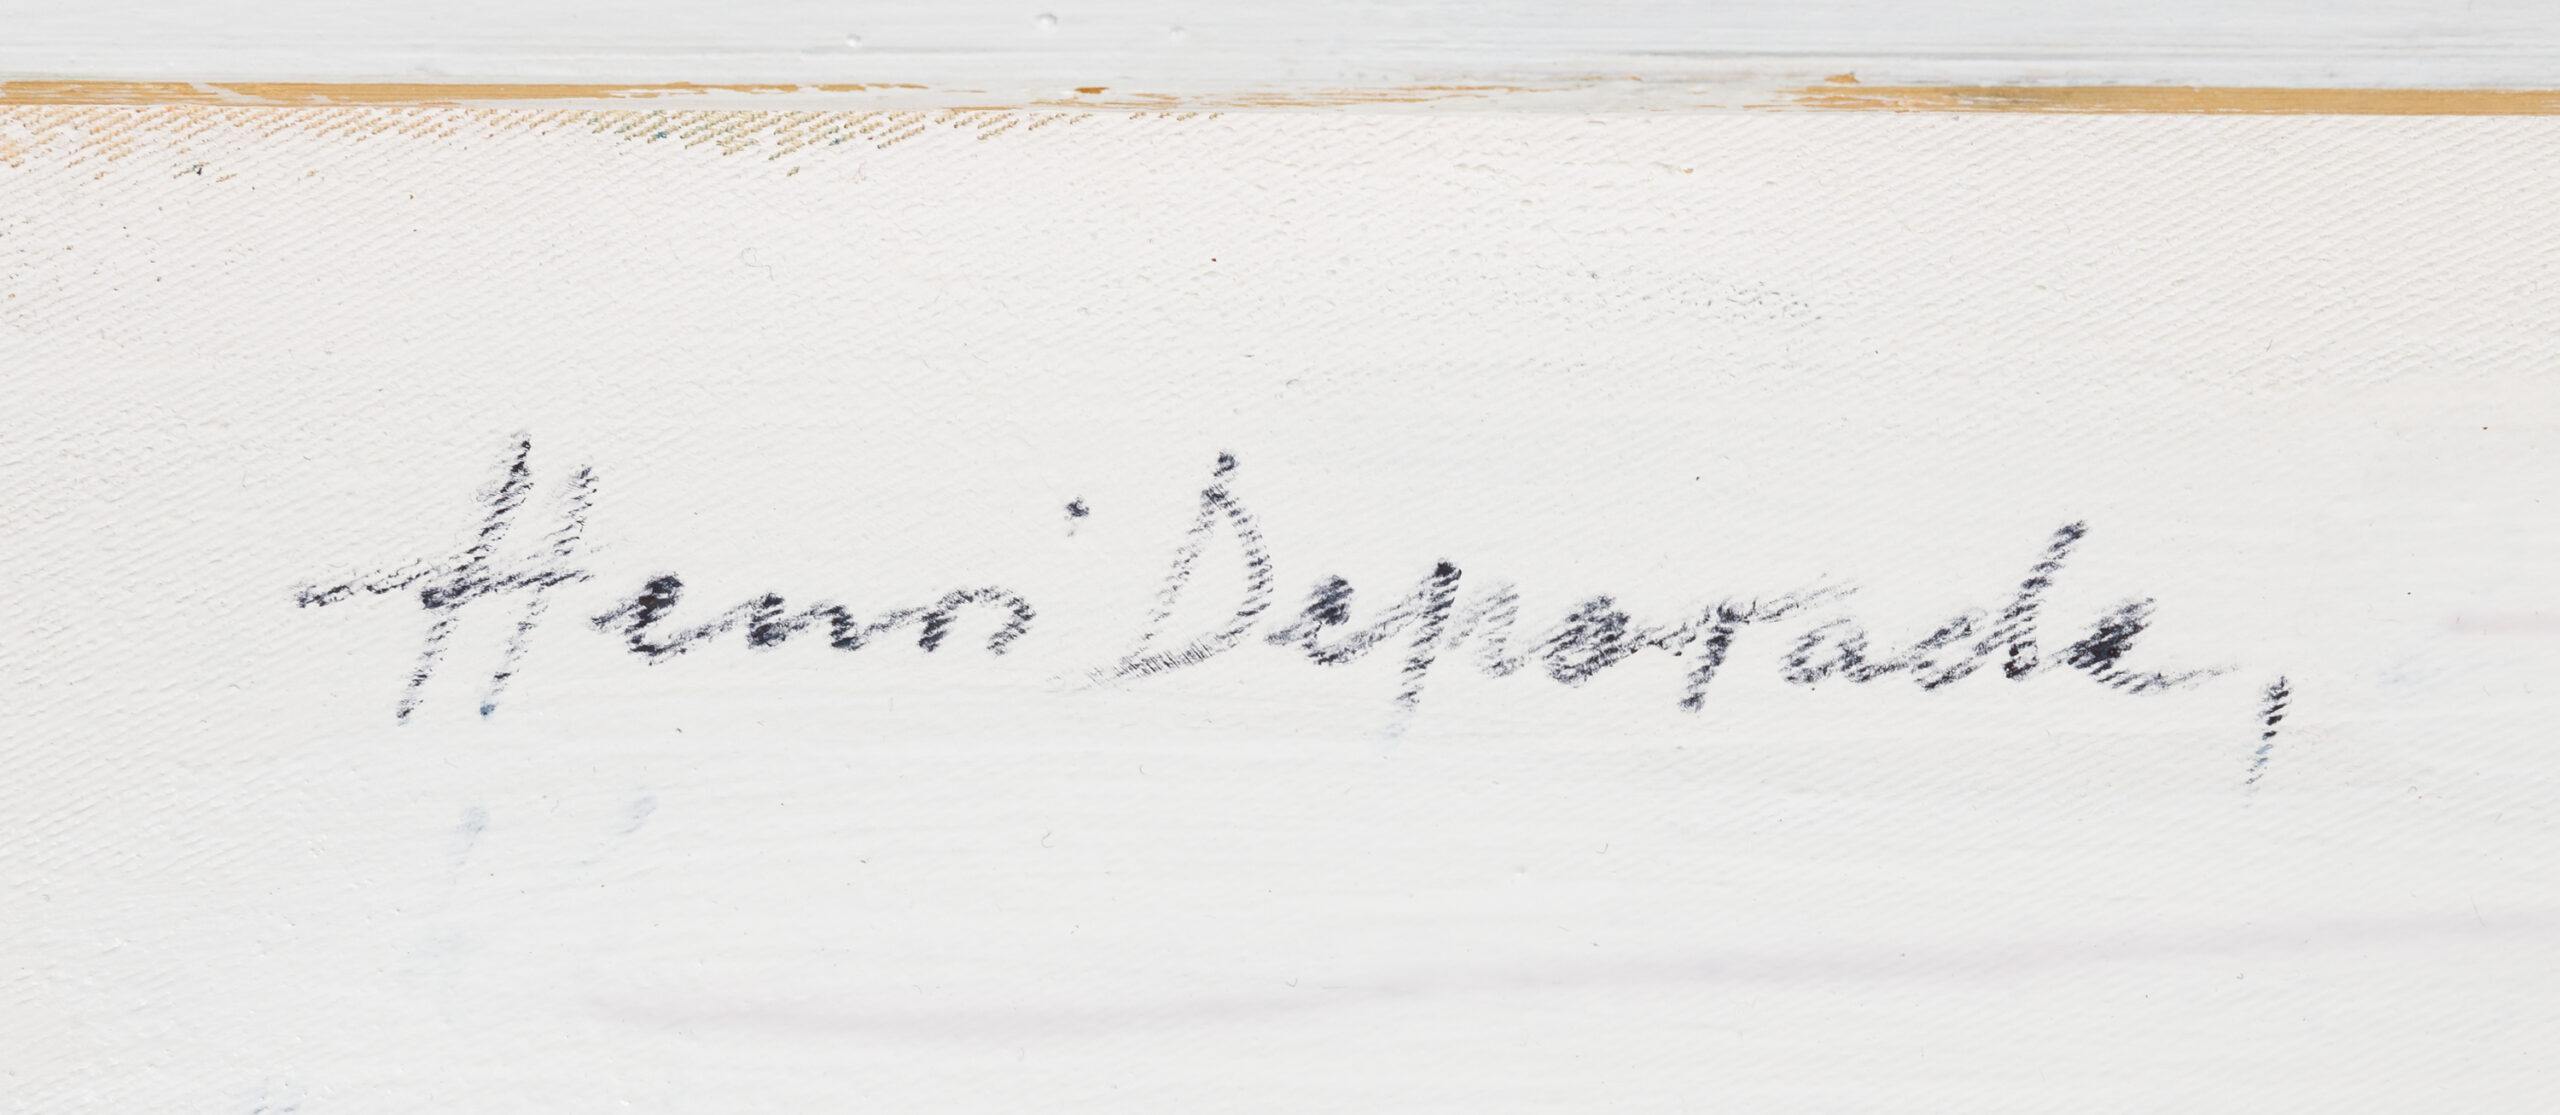 Henri Deparade,